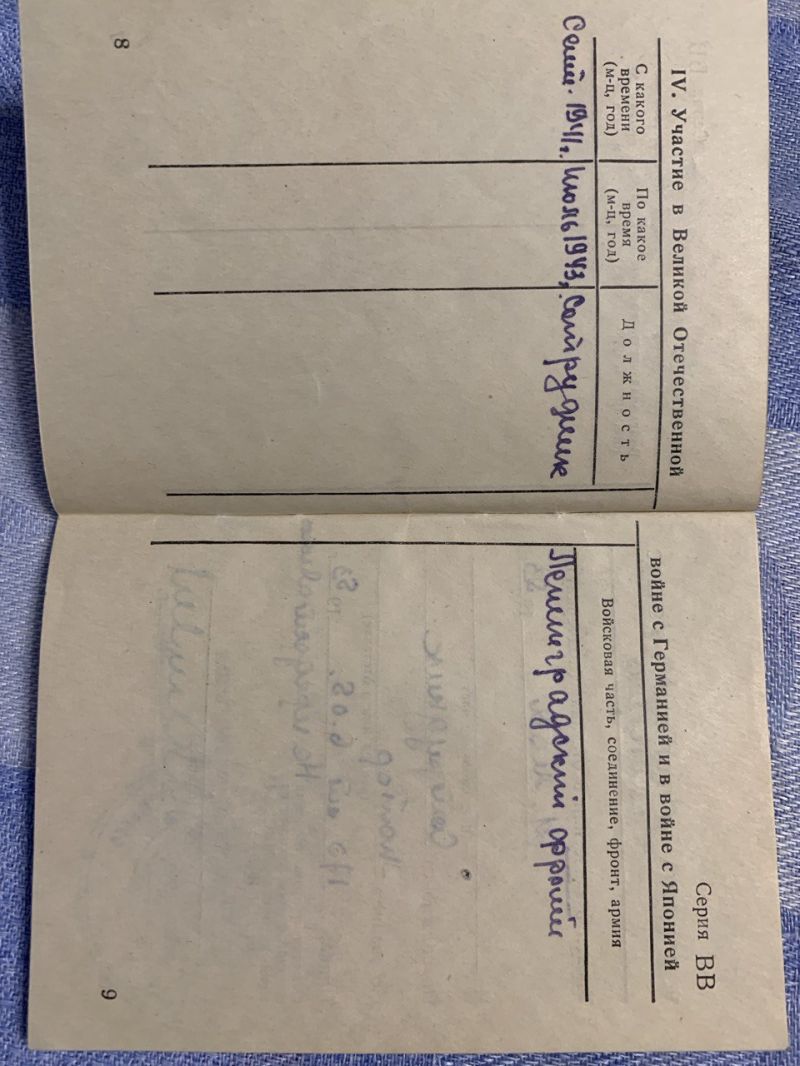 IV. Участие в Великой Отечественной
С какого времени (м-ц, год)
По какое время (м-ц, год)
Должность
Сент. 1941г. Июль 1943г. Сотрудник
8
Серия ВВ
войне с Германией и в войне с Японией
Войсковая часть, соединение, фронт, армия
Ленинградский фронт
9